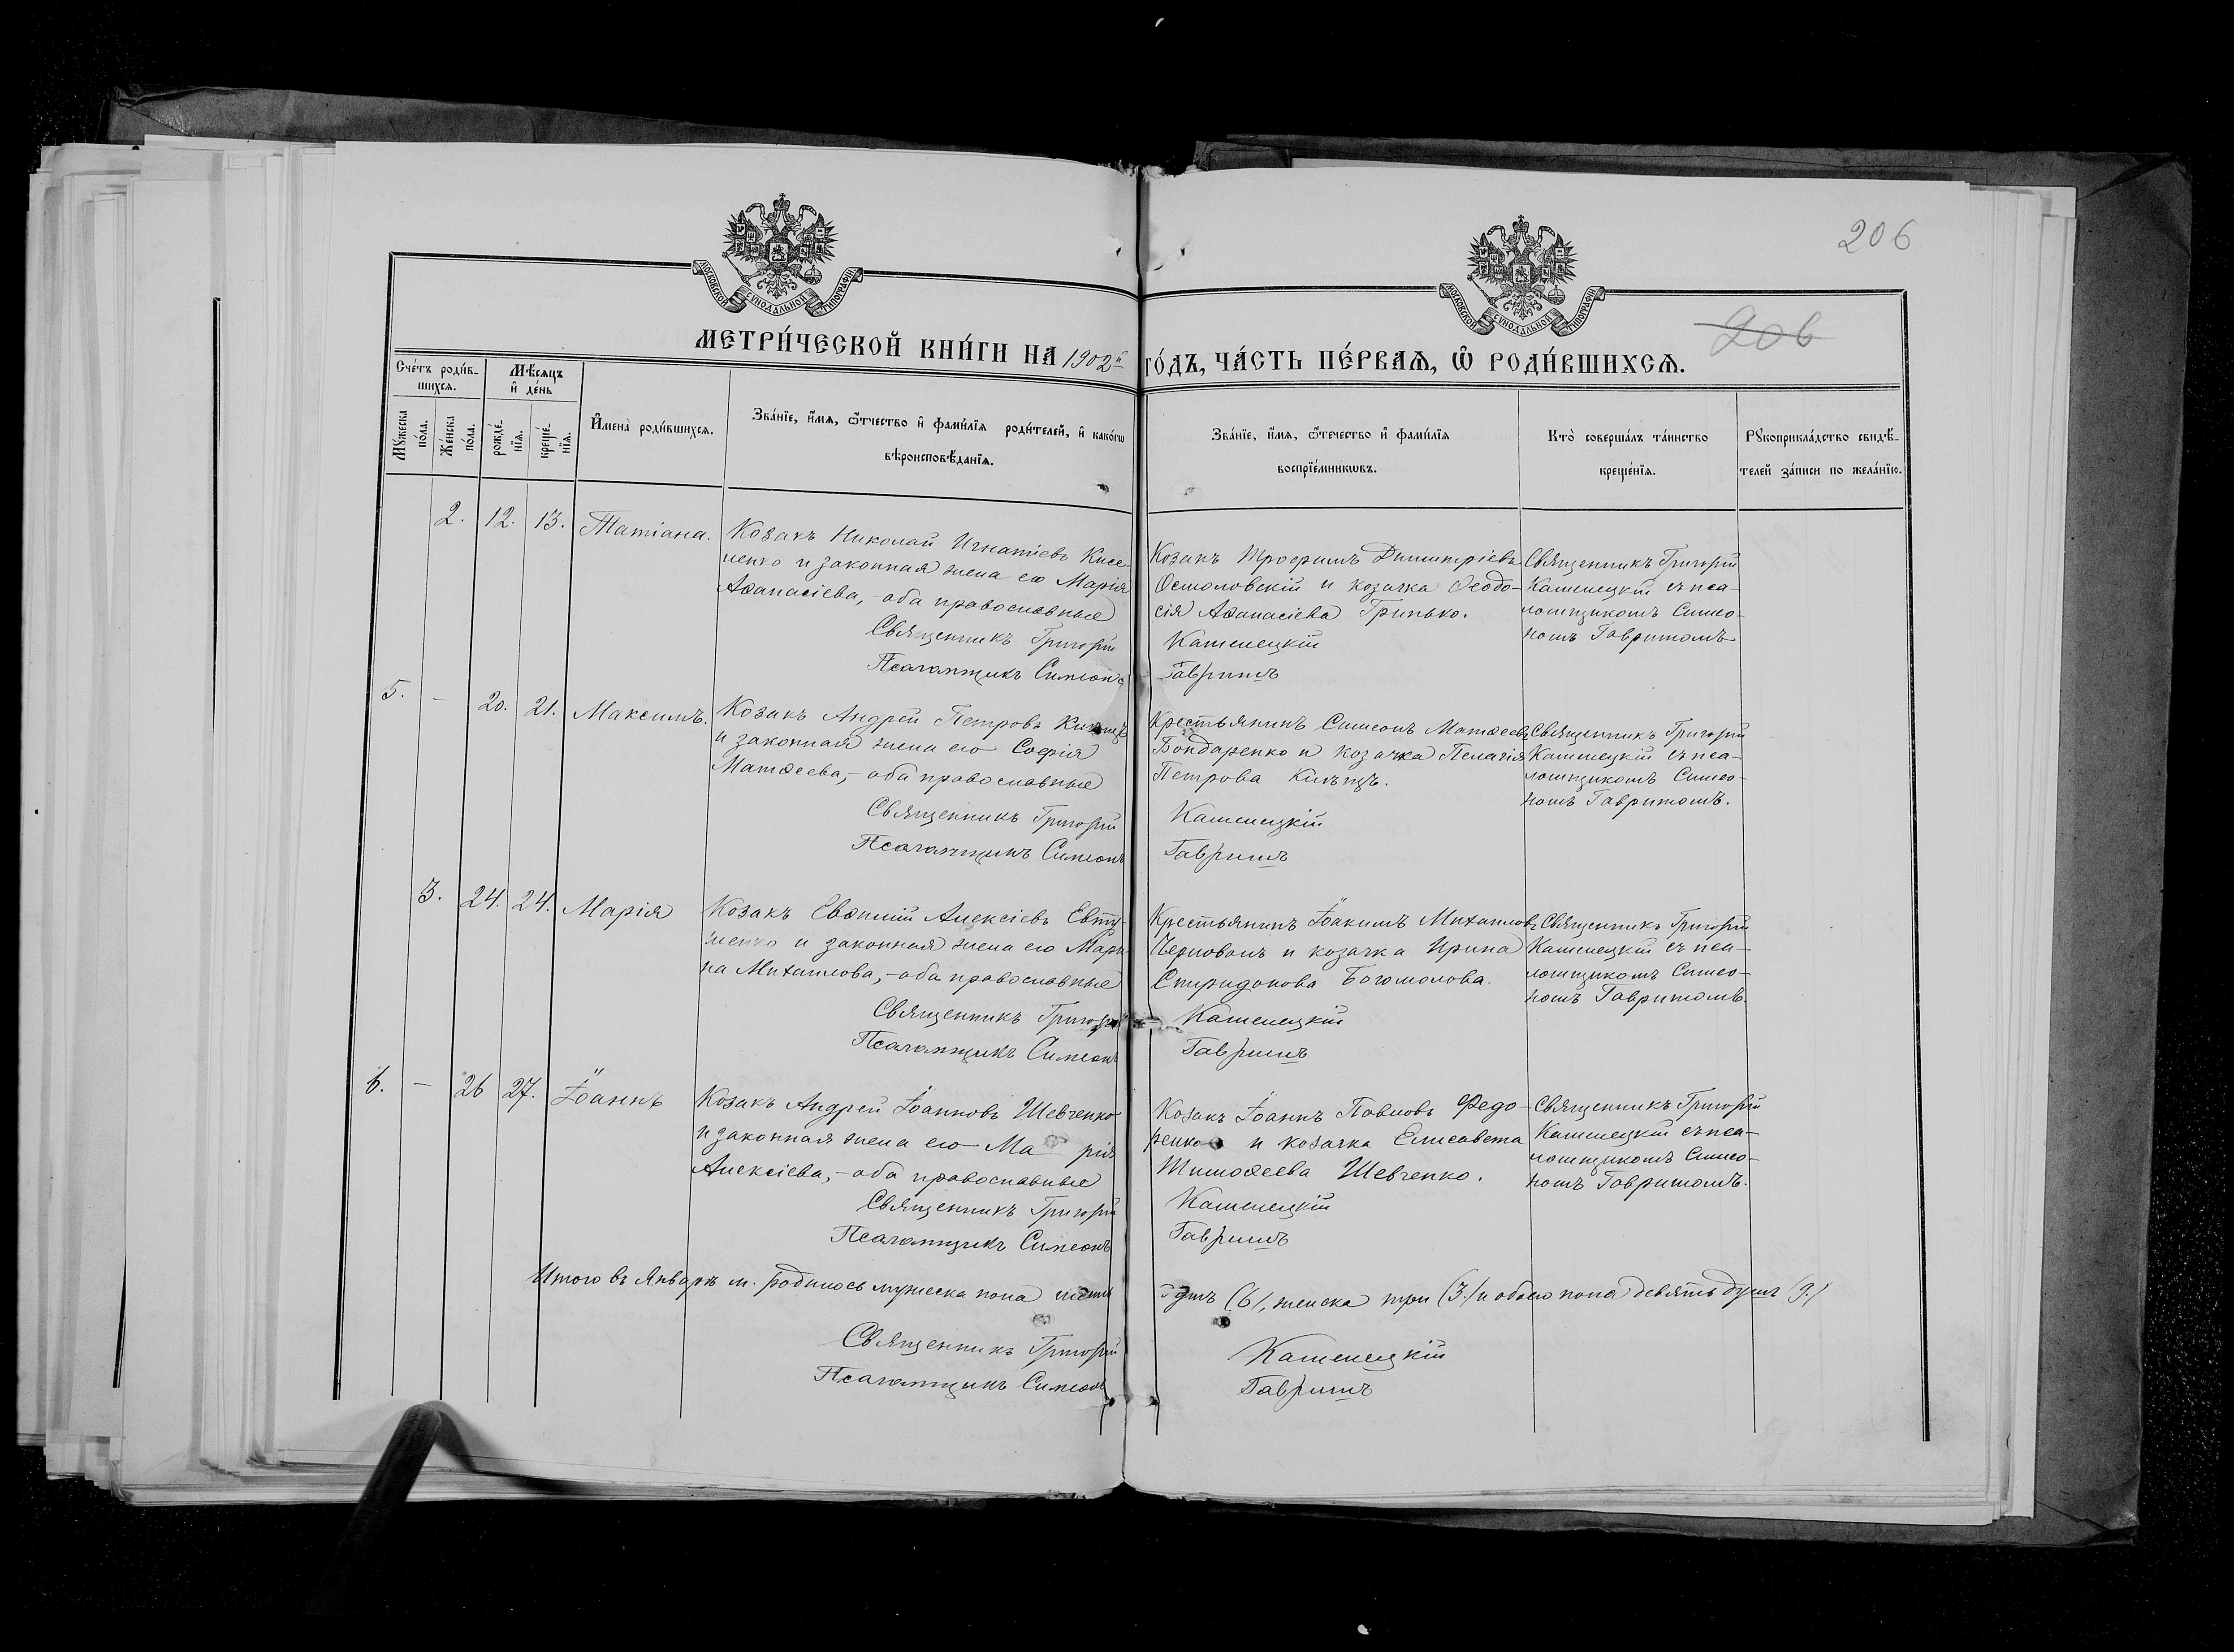 206
206
МОСКОВСКОЙ СѴНОДАЛЬНОЙ ТИПОГРАФІИ
МОСКОВСКОЙ СѴНОДАЛЬНОЙ ТИПОГРАФІИ
МЕТРИ́ЧЕСКОЙ КНИ́ГИ НА 1902й ГО́ДЪ, ЧА́СТЬ ПЕ́РВАѦ, Ѡ РОДИ́ВШИХСѦ.
Сче́тъ роди́в-
шихсѧ.
Мꙋ́жеска по́ла.
Же́нска по́ла.
Мѣ́сѧцъ
и҆ де́нь
рожде́-
нїѧ.
креще́-
нїѧ.
И҆мена̀ роди́вшихсѧ.
Зва́нїе, и҆́мѧ, ѻ҆́тчество и҆ фами́лїѧ роди́телей, и҆ како́гѡ
вѣроисповѣ́данїѧ.
Зва́нїе, и҆́мѧ, ѻ҆́течество и҆ фами́лїѧ
воспрїе́мникѡвъ.
Кто̀ соверша́лъ та́инство
креще́нїѧ.
Рꙋкоприкла́дство свидѣ́-
телей за́писи по жела́нїю.
2. 12. 13. Татіана.
Козакъ Николай Игнатіевъ Кисе-
ленко и законная жена его Марія
Аѳанасіева, - оба православные
Священникъ Григорій
Псаломщикъ Симеонъ
Козакъ Трофимъ Димитріевъ
Осмоловскій и козачка Ѳеодо-
сія Аѳанасіева Гринько.
Каменецкій
Гавришъ
Священникъ Григорій
Каменецкій съ пса-
ломщикомъ Симео-
номъ Гавришомъ
5. - 20. 21. Максимъ.
Козакъ Андрей Петровъ
и законная жена его Софія
Матѳеева, - оба православные
Священникъ Григорій
Псаломщикъ Симеонъ
Крестьянинъ Симеонъ Матѳеевъ
Бондаренко и козачка Пелагія
Петрова
Каменецкій
Гавришъ
Священникъ Григорій
Каменецкій съ пса-
ломщикомъ Симео-
номъ Гавришомъ.
3. 24. 24. Марія
Козакъ Евѳимій Алексіевъ Евту-
шенко и законная жена его Мари-
на Михаилова, - оба православные
Священникъ Григорій
Псаломщикъ Симеонъ
Крестьянинъ Іоакимъ Михаиловъ
и козачка Ирина
Спиридонова Богомолова.
Каменецкій
Гавришъ
Священникъ Григорій
Каменецкій съ пса-
ломщикомъ Симео-
номъ Гавришомъ.
6. - 26 27. Іоаннъ
Козакъ Андрей Іоанновъ Шевченко
и законная жена его Марія
Алексіева, - оба православные
Священникъ Григорій
Псаломщикъ Симеонъ
Козакъ Іоаннъ Павловъ Федо-
ренко и козачка Елисавета
Тимоѳеева Шевченко.
Каменецкій
Гавришъ
Священникъ Григорій
Каменецкій съ пса-
ломщикомъ Симео-
номъ Гавришомъ.
Итого въ Январѣ м. родилось мужеска пола шесть душъ (6), женска три (3.) и обоего пола девять душъ (9.)
Священникъ Григорій Каменецкій
Псаломщикъ Симеонъ Гавришъ